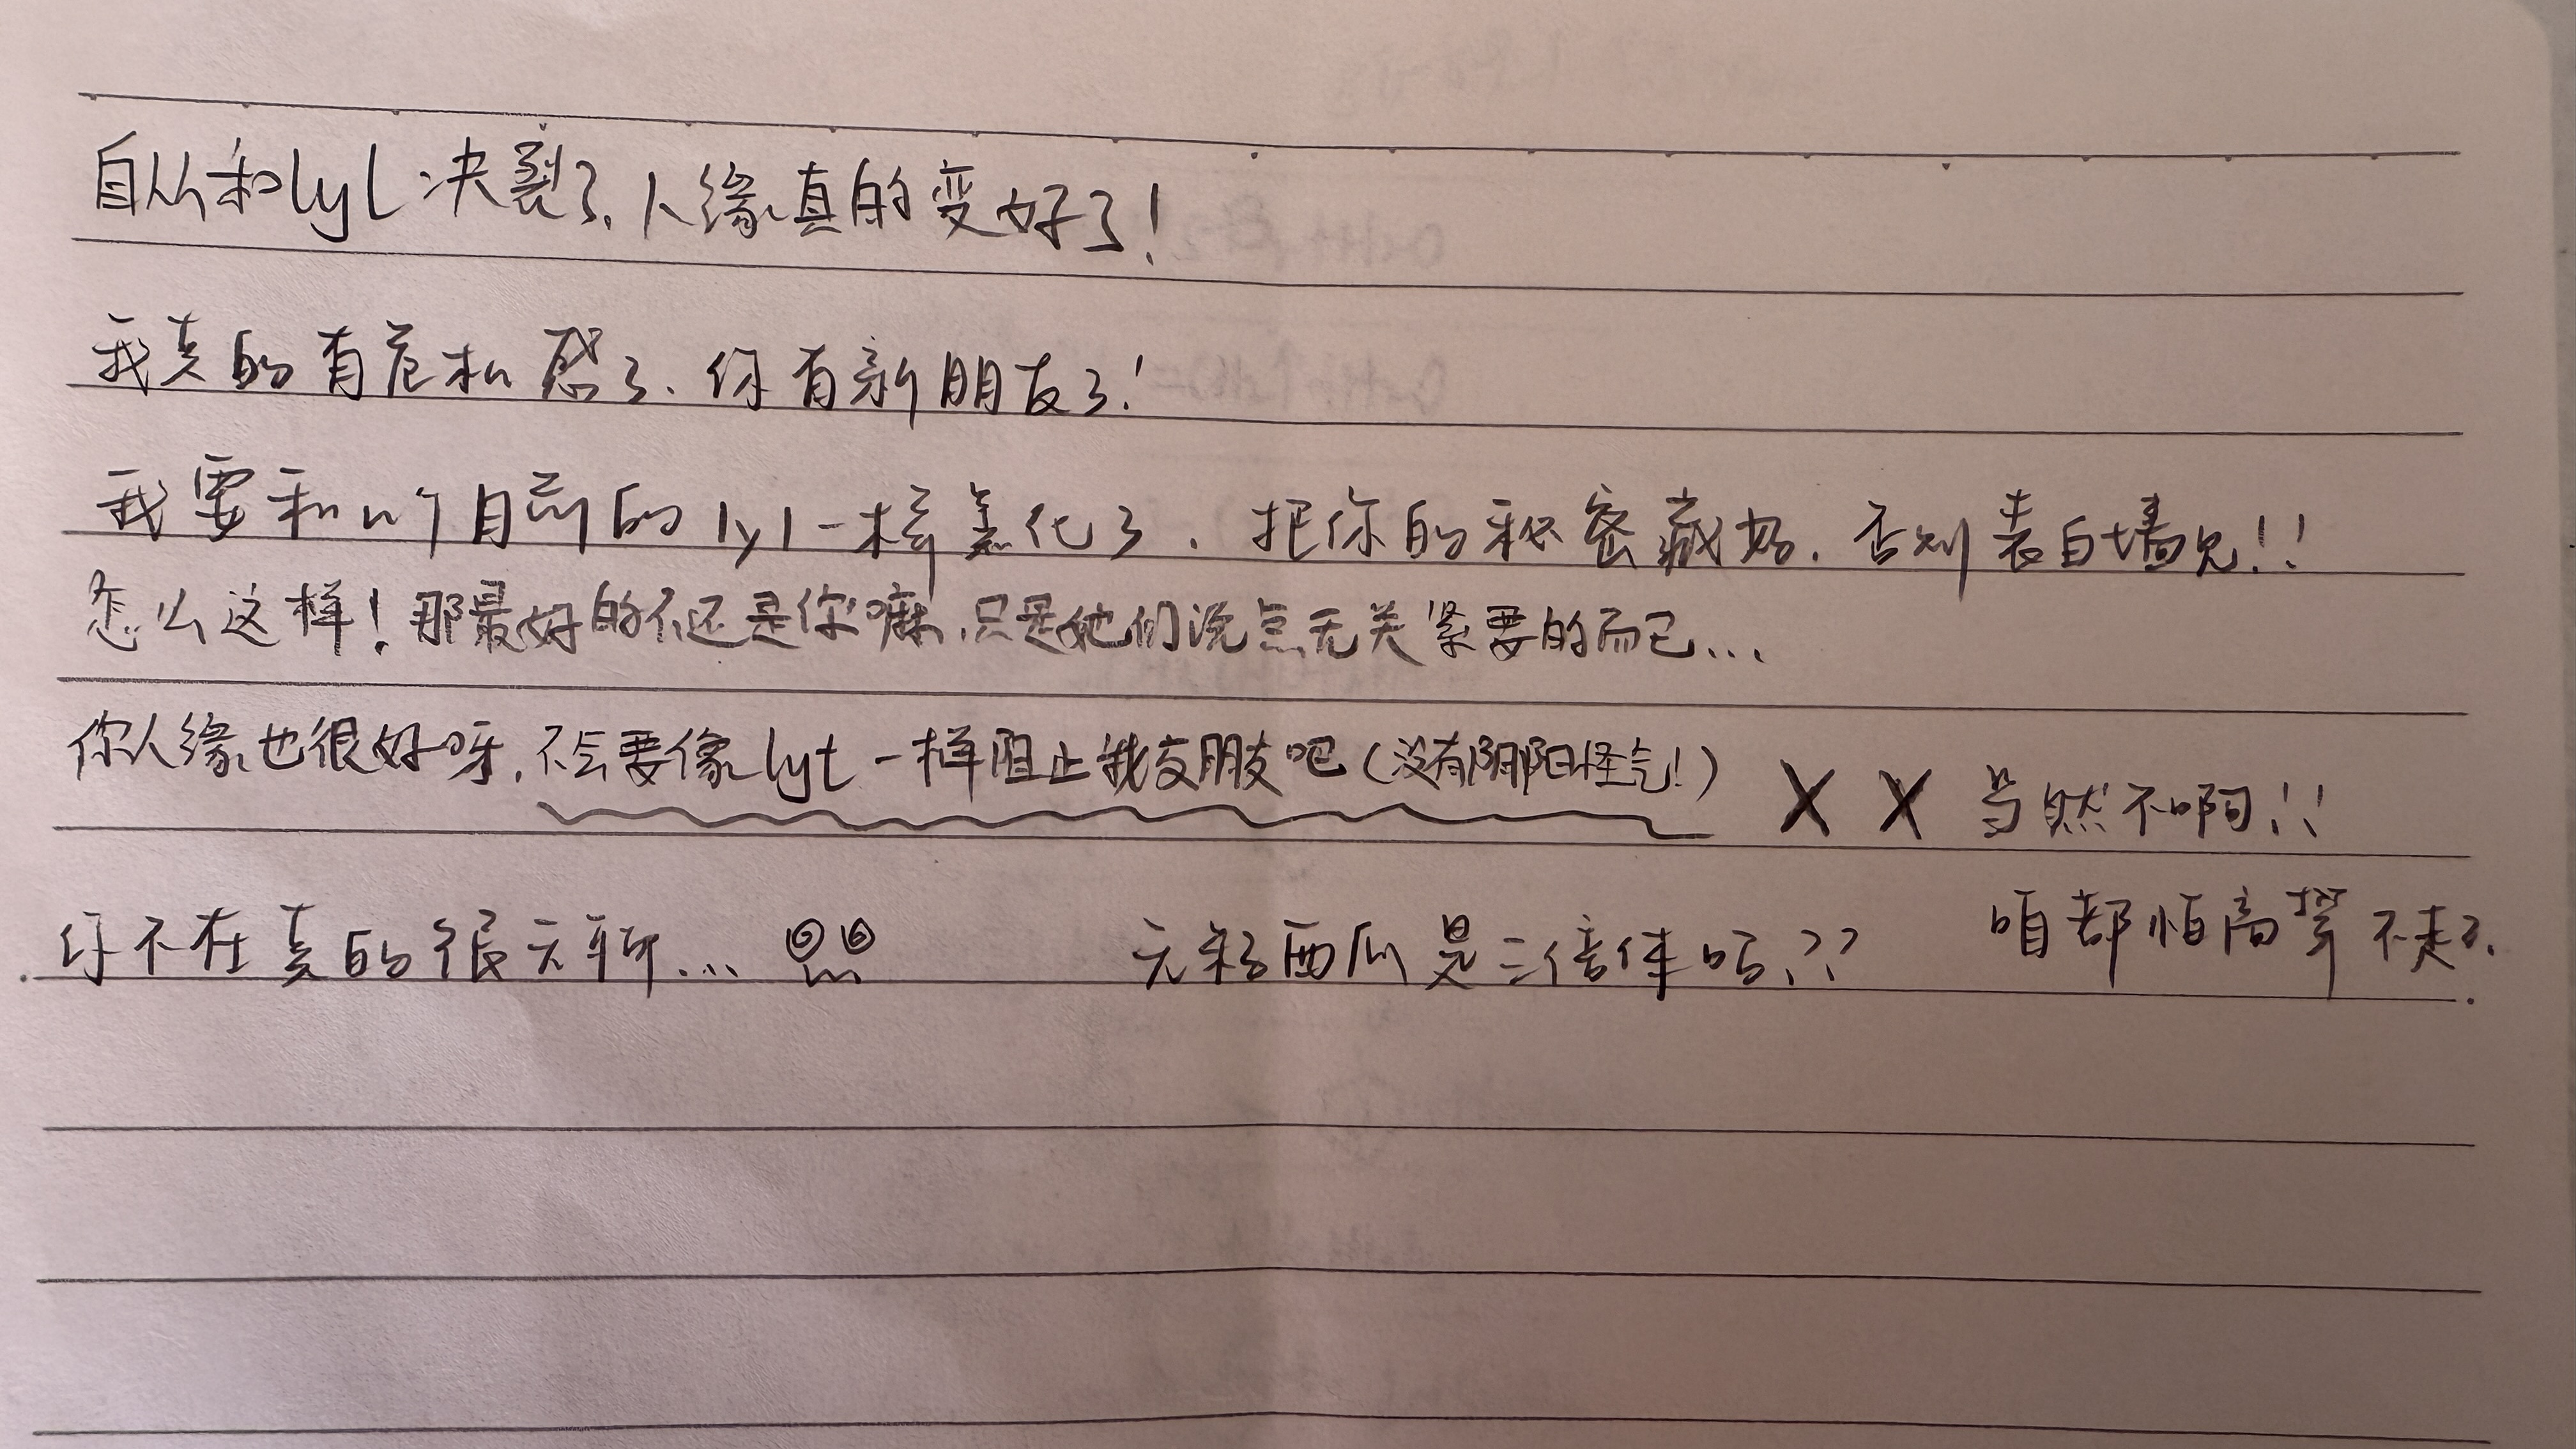 自从和lyl决裂了，人缘真的变好了！
我真的有危机感了、你有新朋友了！
我要和n个月前的lyl一样黑化了，把你的秘密藏好，否则表白墙见！！
怎么这样！那最好的不还是你嘛，只是她们说点无关紧要的而已...
你人缘也很好呀，不会要像lyt一样阻止我交朋友吧（没有阴阳怪气！） X X 当然不啊！！
你不在真的很无聊...
无籽西瓜是三倍体吗？？
咱都怕高 不走了